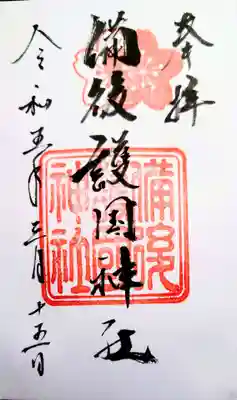 奉拝
備後護国神社
令和五年三月十五日
備後
神社